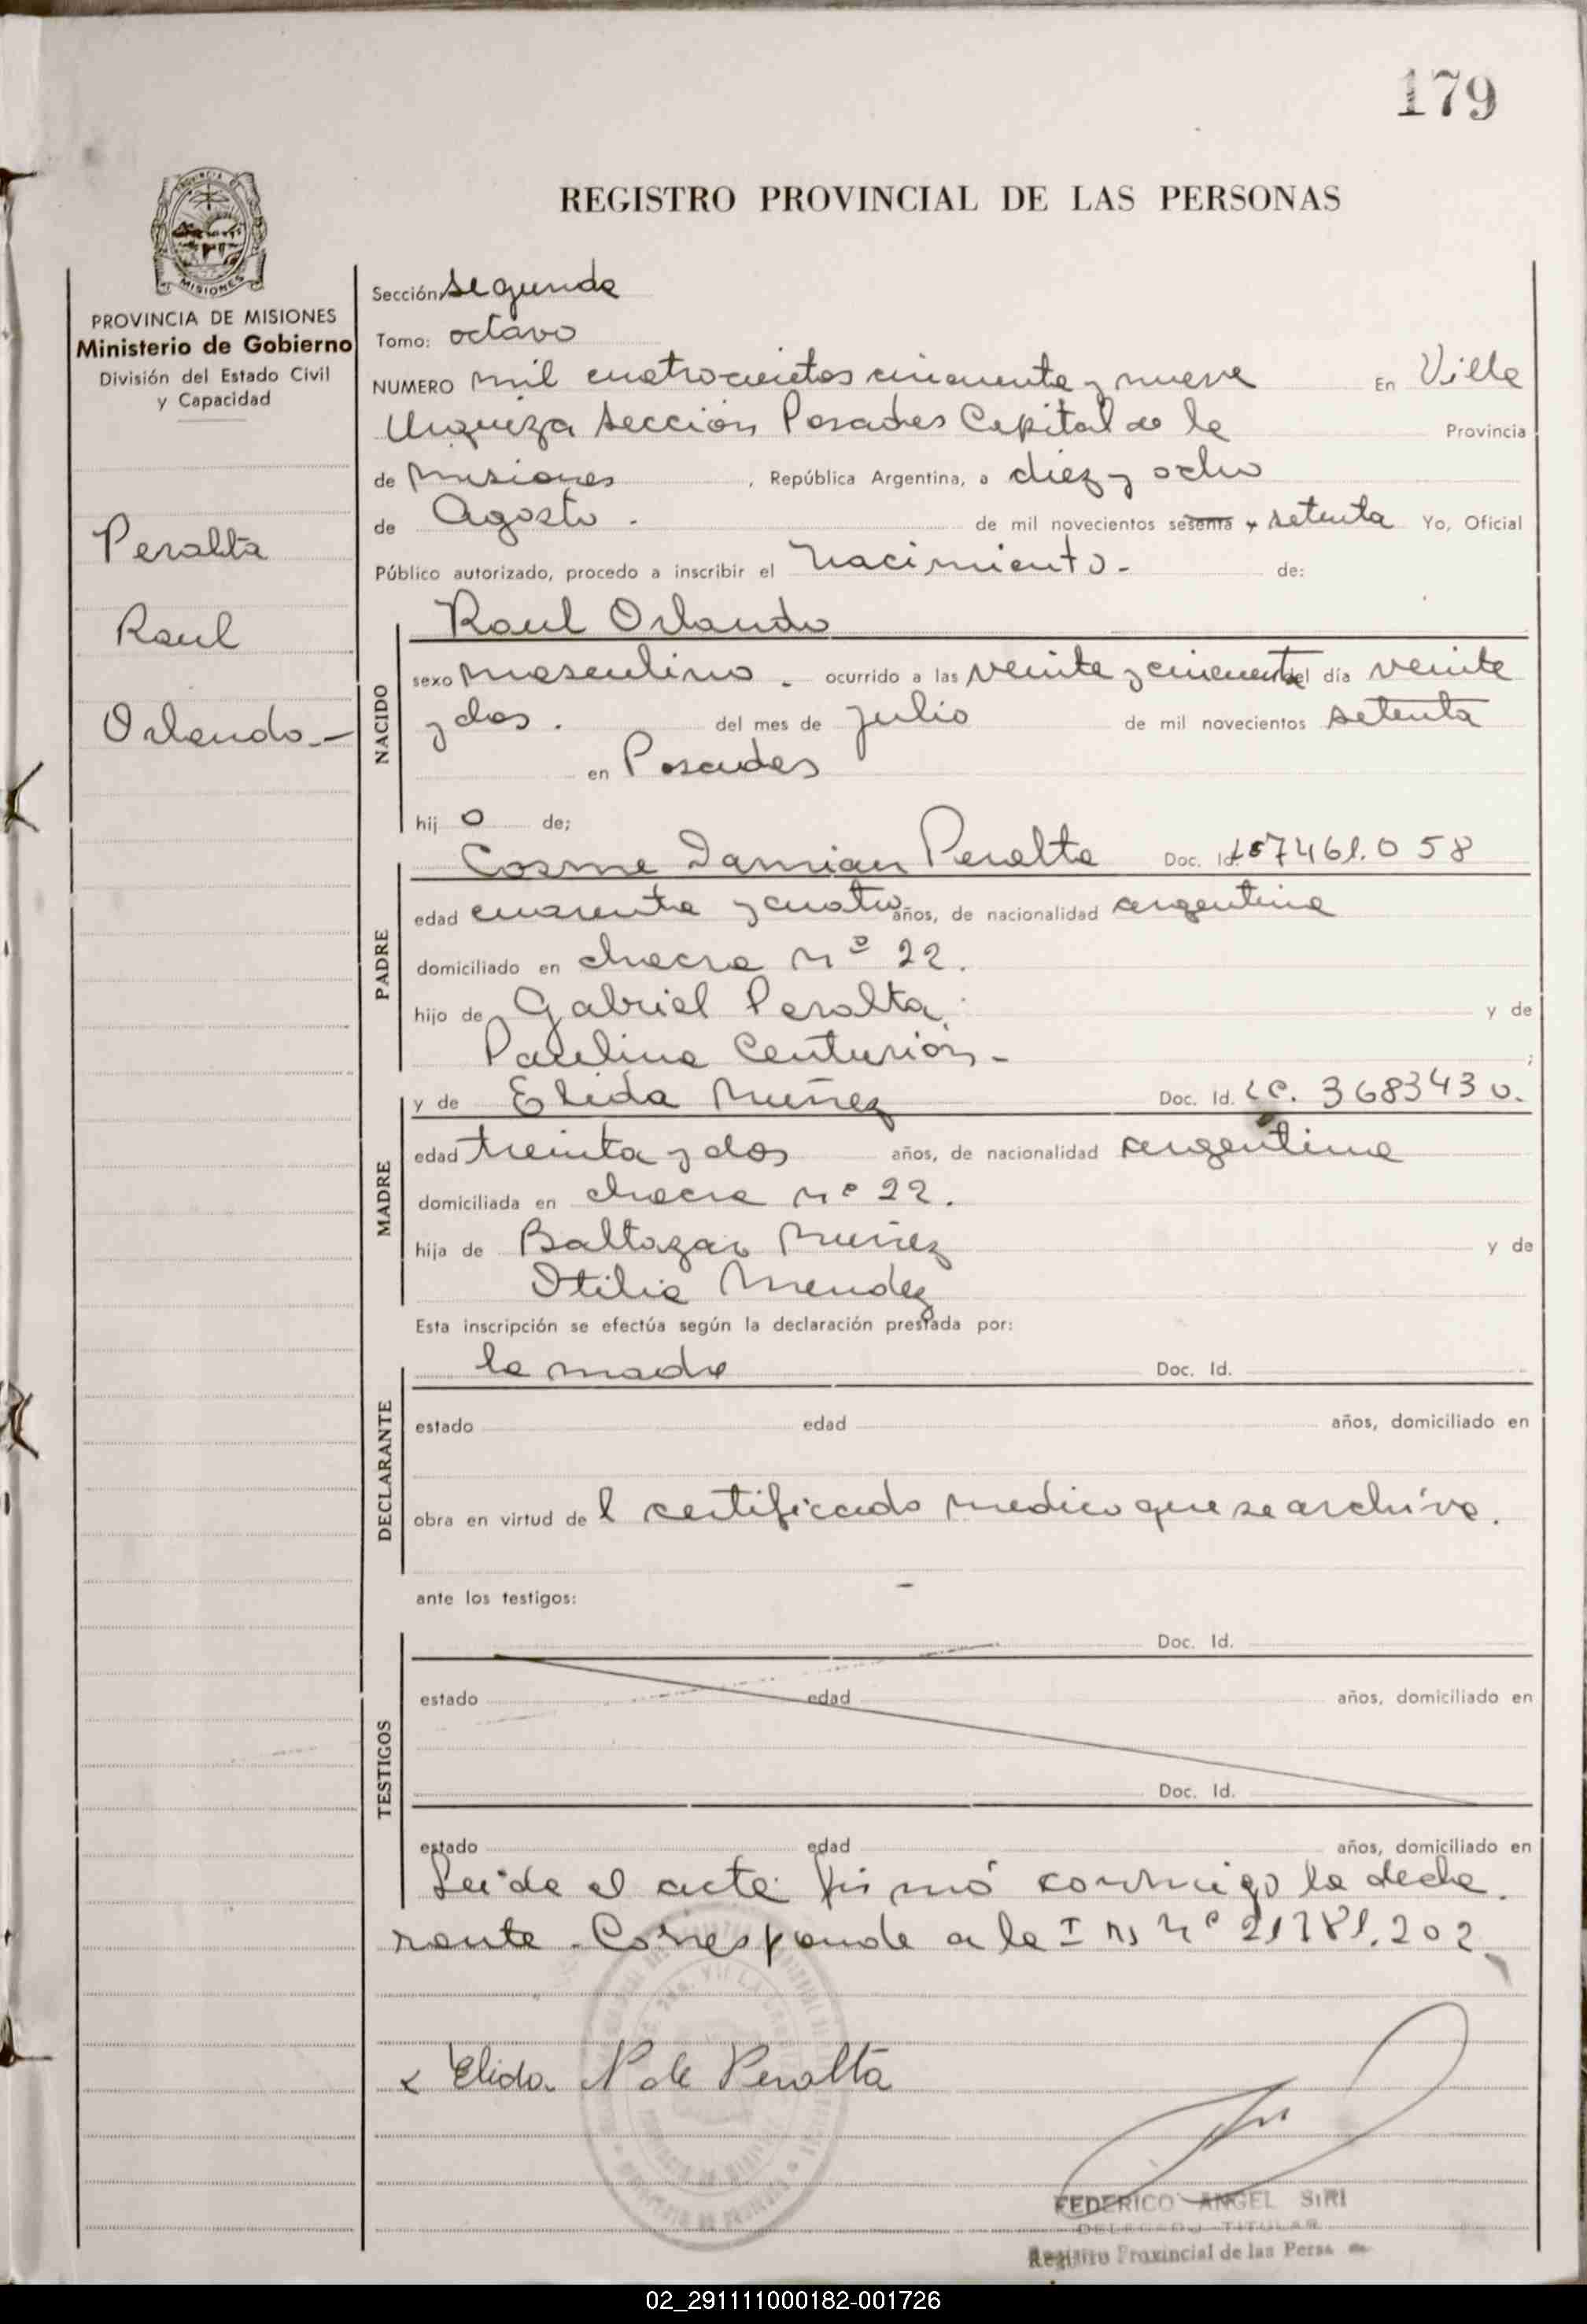 179
REGISTRO PROVINCIAL DE LAS PERSONAS
PROVINCIA DE MISIONES
Ministerio de Gobierno
División del Estado Civil
y Capacidad
Peralta
Raul
Orlando.-
Sección: segunda
Tomo: octavo
NUMERO mil cuatrocientos cincuenta y nueve En Villa
Urquiza sección Posadas Capital de la Provincia
de Misiones , República Argentina, a diez y ocho
de Agosto. de mil novecientos sesenta y setenta Yo, Oficial
Público autorizado, procedo a inscribir el nacimiento- de:
NACIDO
Raul Orlando
sexo masculino. ocurrido a las veinte y cincuenta del día veinte
y dos. del mes de julio de mil novecientos setenta
en Posadas
hij o de;
PADRE
Cosme Damian Peralta Doc. Id. 7461.058
edad cuarenta y cuatro años, de nacionalidad argentina
domiciliado en chacra nº 22.
hijo de Gabriel Peralta. y de
Paulina Centurión- ;
MADRE
y de Elida Nuñez Doc. Id. LC. 3683430.
edad treinta y dos años, de nacionalidad argentina
domiciliada en chacra nº 22.
hija de Baltazar Nuñez y de
Otilia Mendez
Esta inscripción se efectúa según la declaración prestada por:
DECLARANTE
la madre Doc. Id.
estado edad años, domiciliado en
obra en virtud de l certificado medico que se archiva.
ante los testigos: -
TESTIGOS
Doc. Id.
estado edad años, domiciliado en
Doc. Id.
estado edad años, domiciliado en
Leida el acta firmó conmigo la decla
rante. Corresponde a la I ns nº 21781.202
x Elida N de Peralta
FEDERICO ANGEL SIRI
DELEGADO TITULAR
Registro Provincial de las Perso
02_291111000182-001726